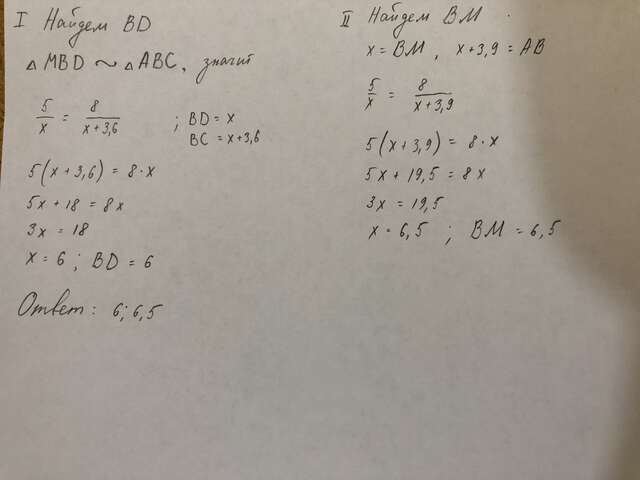 I Найдем BD
△ MBD ~ △ ABC, значит
5/x = 8/(x+3,6) ; BD = x
BC = x+3,6
5(x+3,6) = 8·x
5x + 18 = 8x
3x = 18
x = 6 ; BD = 6
Ответ: 6; 6,5
II Найдем BM
x = BM, x+3,9 = AB
5/x = 8/(x+3,9)
5(x+3,9) = 8·x
5x + 19,5 = 8x
3x = 19,5
x = 6,5 ; BM = 6,5